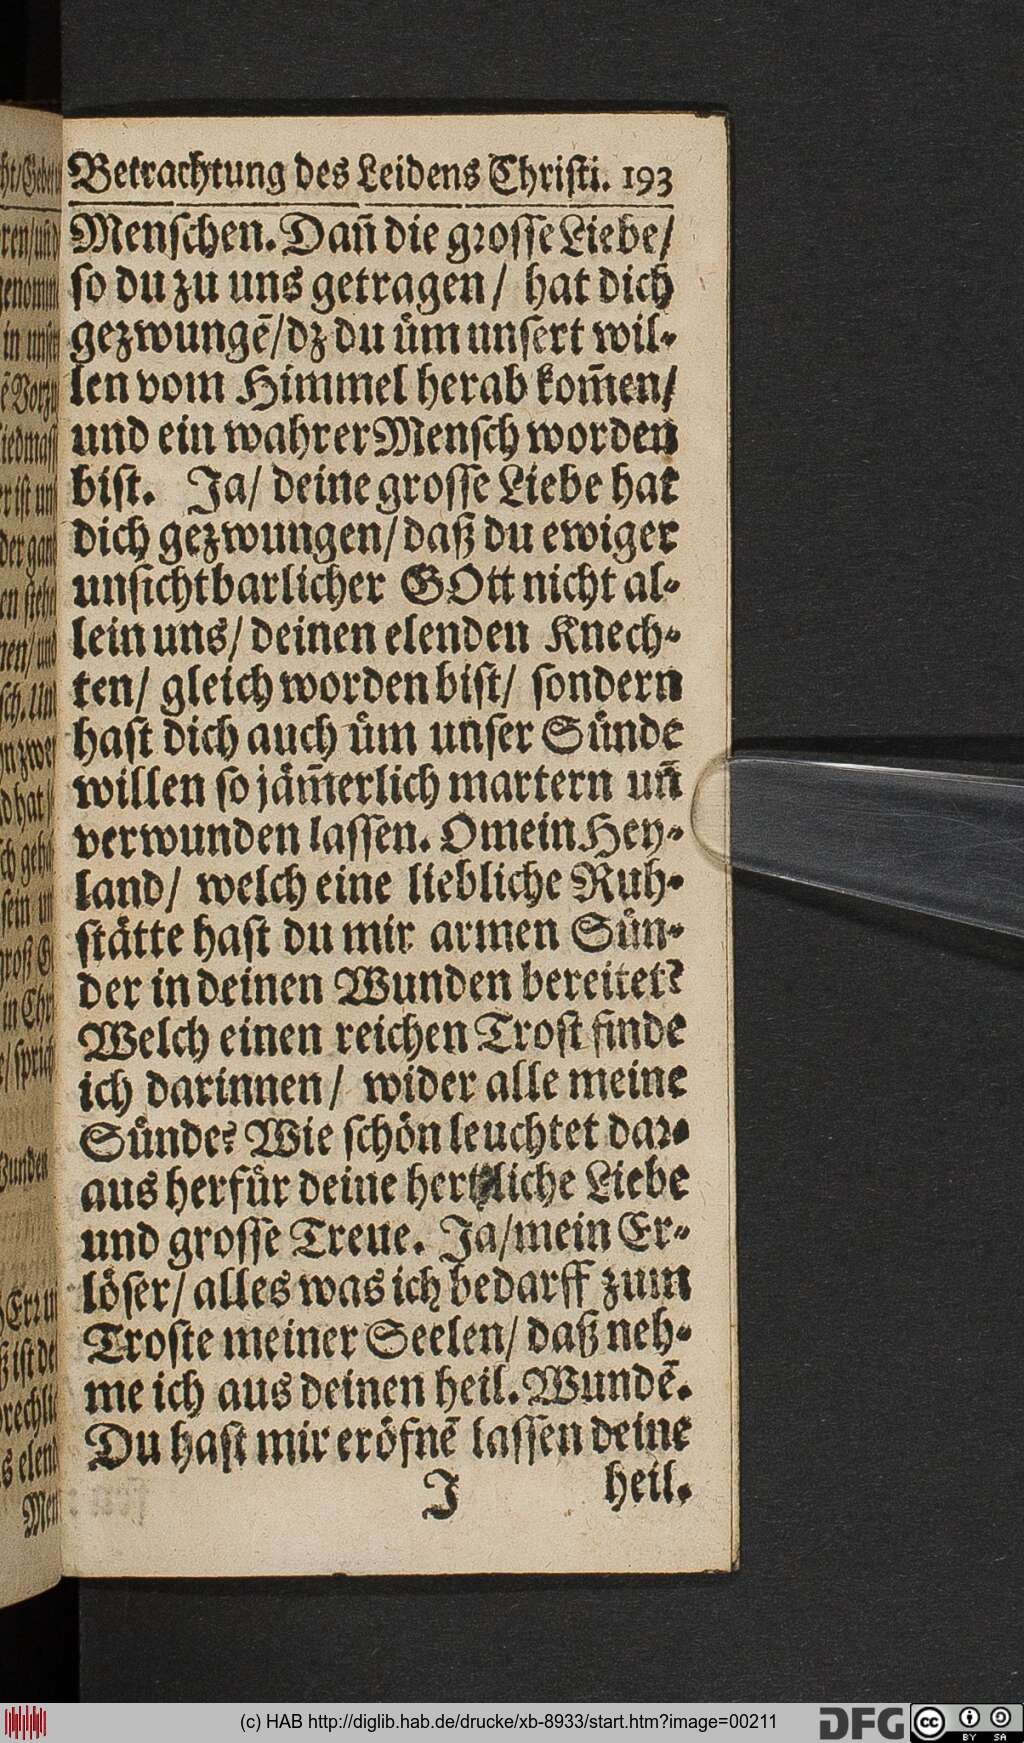 Betrachtung des Leidens Christi. 193
Menschen. Dañ die grosse Liebe/
so du zu uns getragen/ hat dich
gezwungē/dz du üm unsert wil-
len vom Himmel herab kom̄en/
und ein wahrer Mensch worden
bist. Ja/ deine grosse Liebe hat
dich gezwungen/ daß du ewiger
unsichtbarlicher GOtt nicht al-
lein uns/ deinen elenden Knech-
ten/ gleich worden bist/ sondern
hast dich auch üm unser Sünde
willen so jäm̄erlich martern uñ
verwunden lassen. O mein Hey-
land/ welch eine liebliche Ruh-
stätte hast du mir armen Sün-
der in deinen Wunden bereitet?
Welch einen reichen Trost finde
ich darinnen/ wider alle meine
Sünde? Wie schön leuchtet dar-
aus herfür deine hertzliche Liebe
und grosse Treue. Ja/mein Er-
löser/ alles was ich bedarff zum
Troste meiner Seelen/ daß neh-
me ich aus deinen heil. Wundē.
Du hast mir eröfnē lassen deine
I heil.
(c) HAB http://diglib.hab.de/drucke/xb-8933/start.htm?image=00211
DFG
cc BY SA